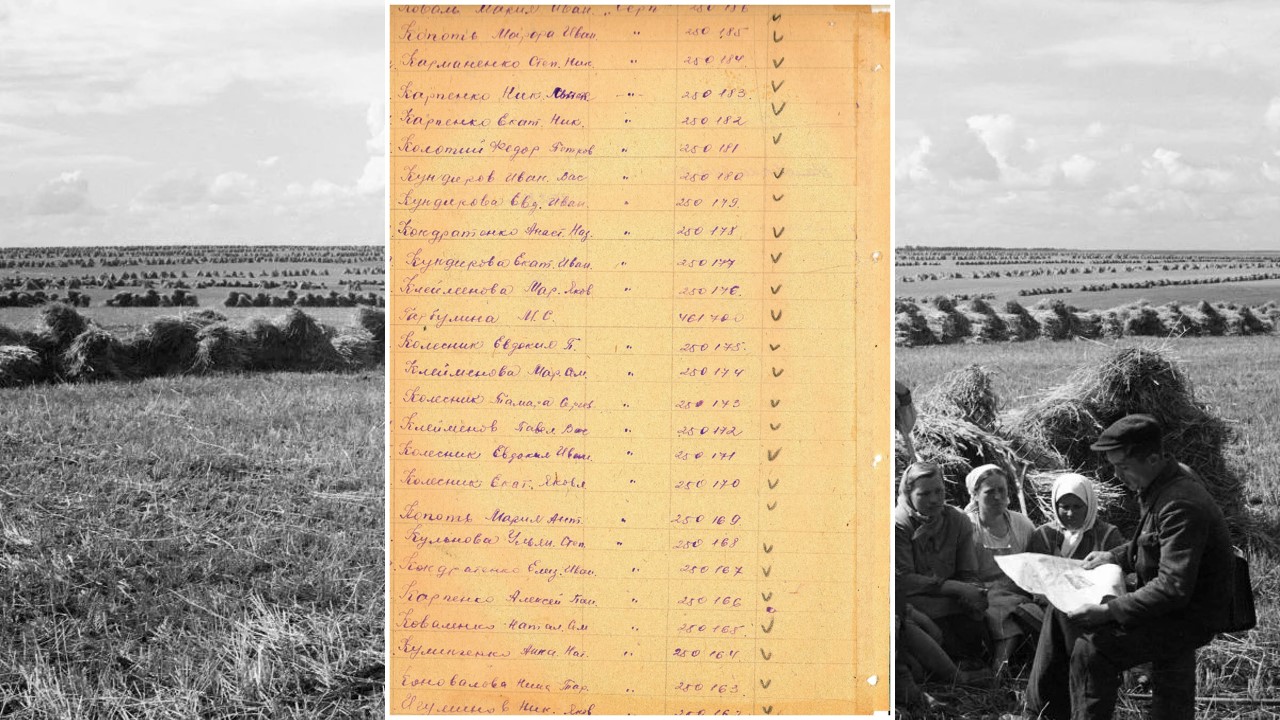 Коваль Мария Иван. „Серп 250 186
Копоть Майора Иван. " 250 185
Карманенко Степ. Ник. " 250 184
Карпенко Ник. " 250 183.
Карпенко Екат. Ник. " 250 182
Колотий Федор Петров " 250 181
Кундиров Иван. Вас " 250 180
Кундирова Евд. Иван. " 250 179.
Кондратенко Анаст. Наз. " 250 178
Кундирова Екат. Иван. " 250 177
Клейменова Мар. Яков " 250 176.
М. С. 461 700
Колесник Евдокия П. " 250 175.
Клейменова Мар. Сем. " 250 174
Колесник Тамара " 250 173
Клейменов Павел Вас " 250 172
Колесник Евдоким Иван. " 250 171
Колесник Екат. Яковл " 250 170
Копоть Мария Ант. " 250 169.
Кулькова Ульян. Степ. " 250 168
Кондратенко Елиз. Иван. " 250 167
Карпенко Алексей Пан. " 250 166
Коваленко Натал. Сем " 250 165.
Анна Наз. " 250 164
Коновалова Нина " 250 163.
Игуминов Ник. Яков " 250 162